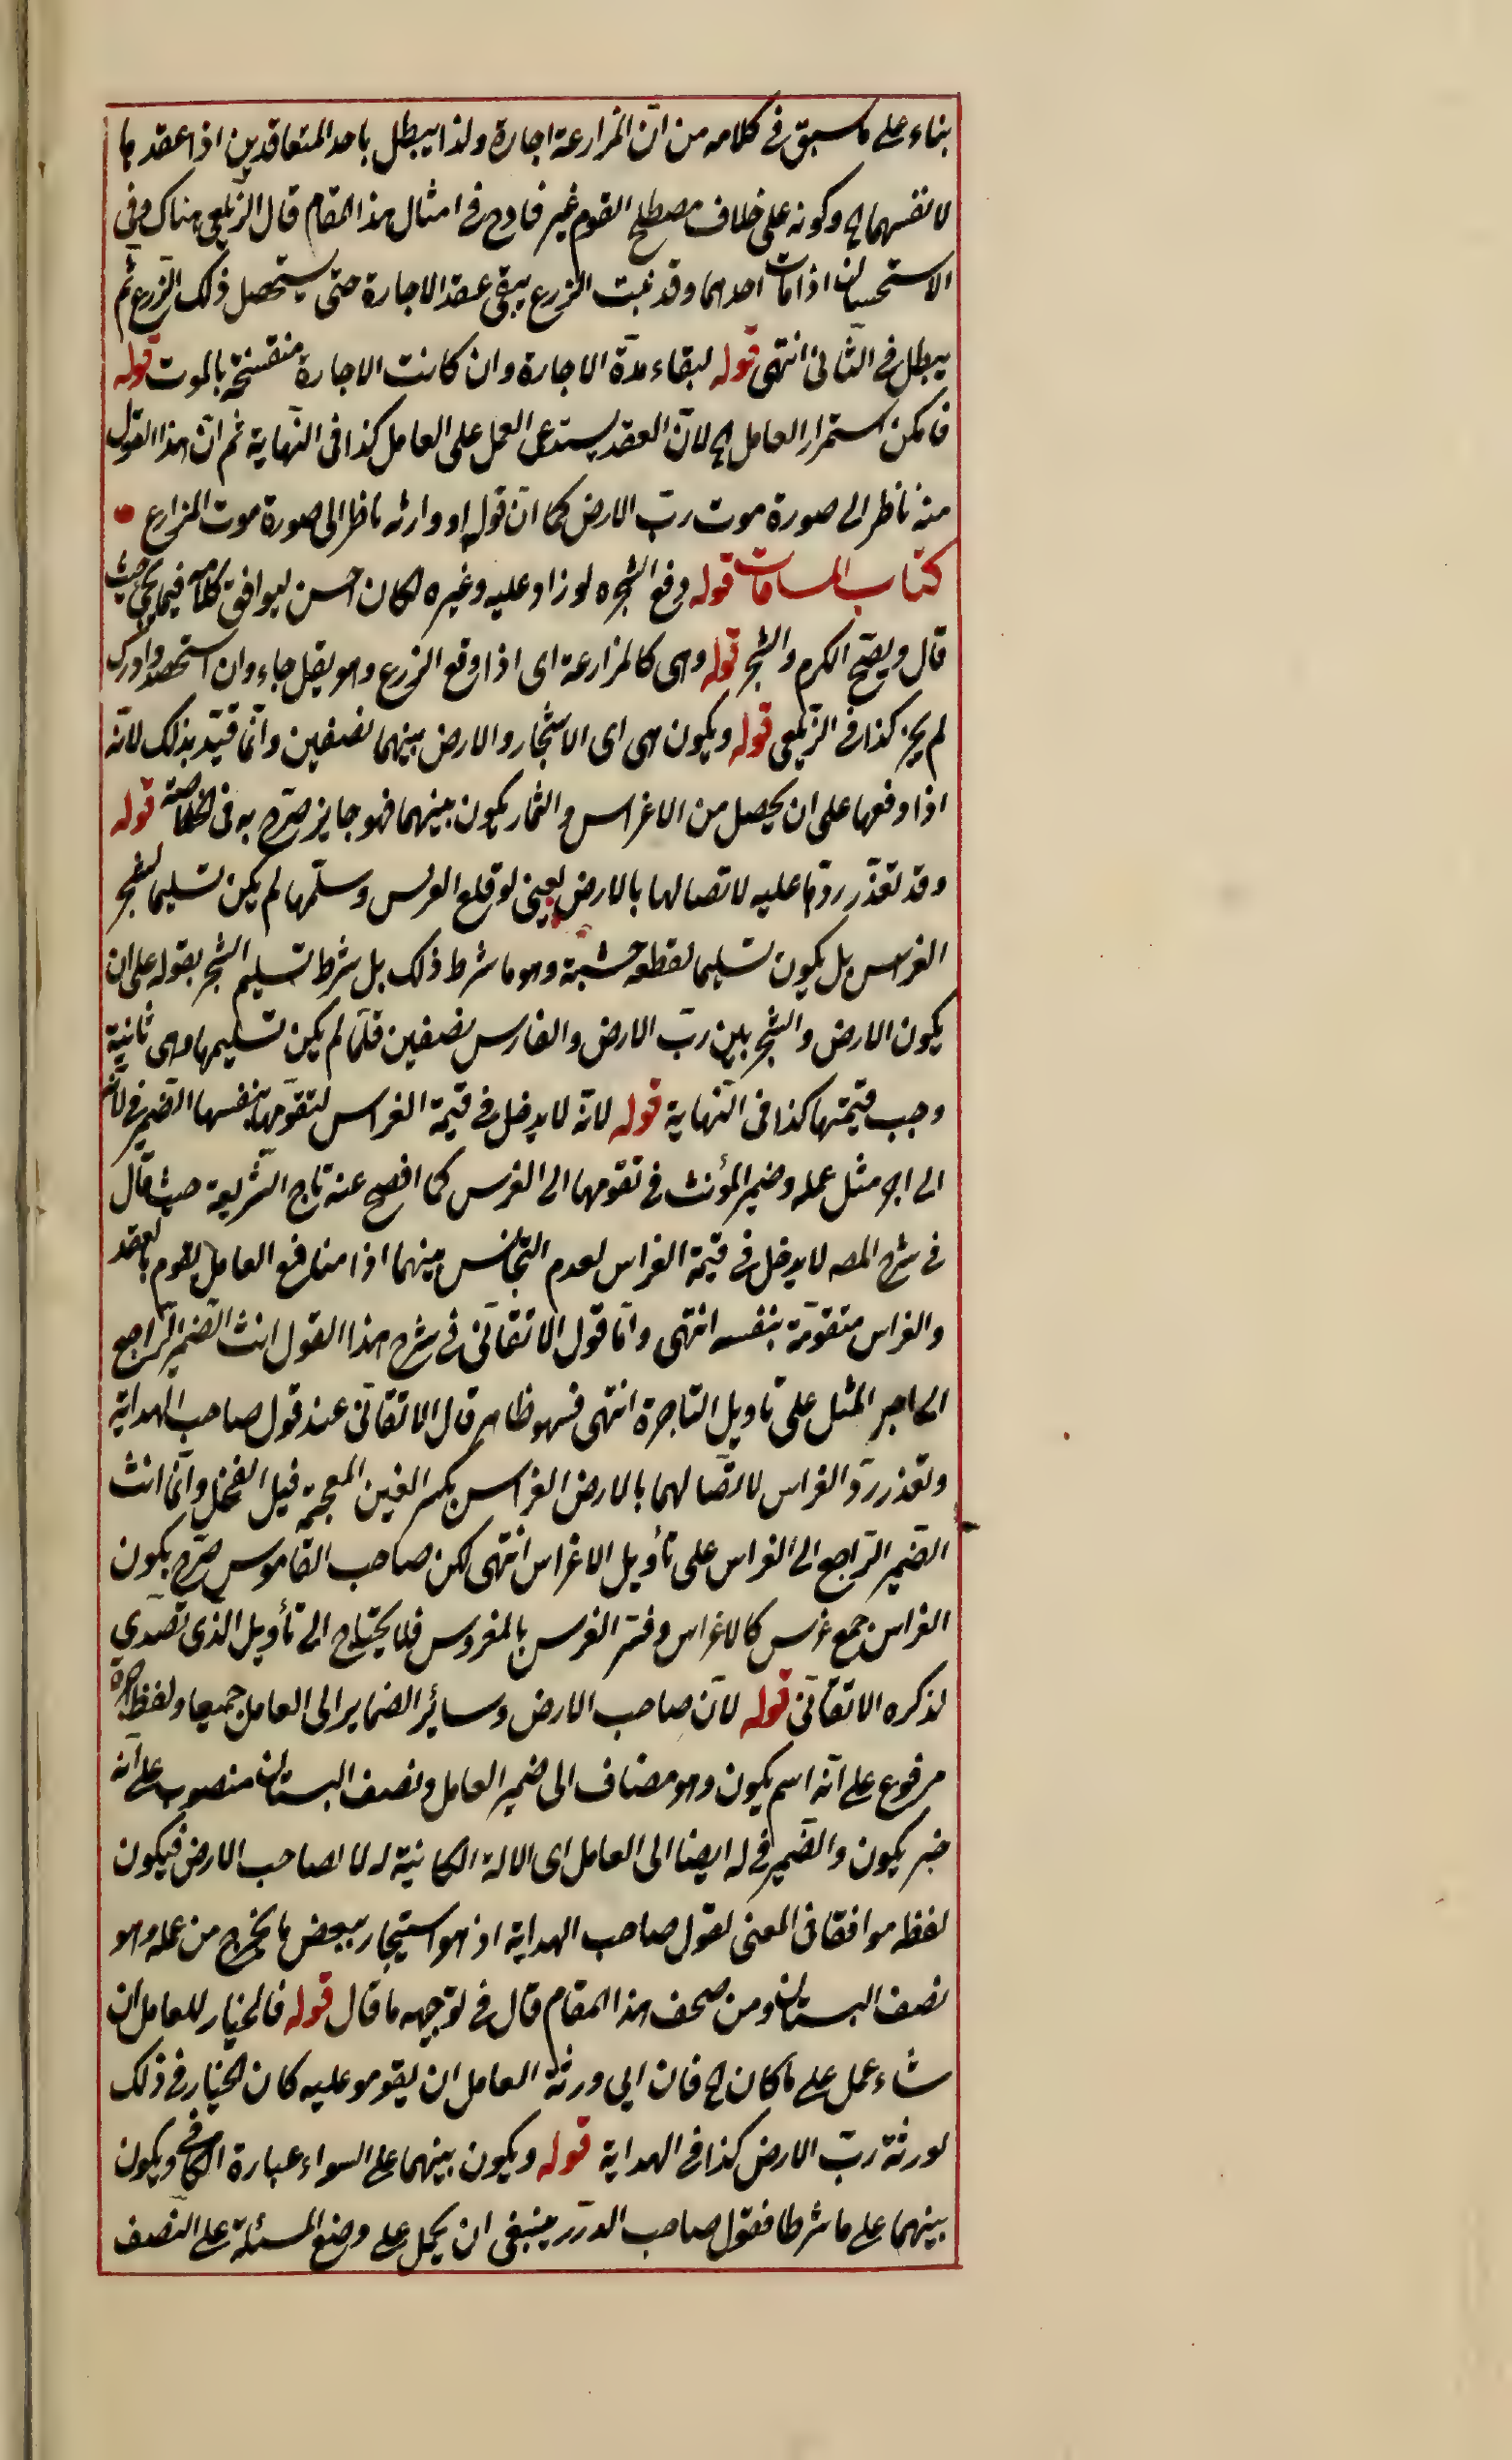 بناء على ما سبق فى كلامه من ان المزارعة اجارة ولذا يبطل باحد المتعاقدين اذا عقد بها
لانفسهما اه وكونه على خلاف مصطلح القوم غير قادح فى امثال هذا المقام قال الزيلعى هناك وفى
الاستحسان اذا مات احدهما وقد نبت الزرع يبقى عقد الاجارة حتى يستحصل ذلك الزرع ثم
يبطل فى الثانى انتهى قوله لبقاء مدة الاجارة وان كانت الاجارة منفسخة بالموت قوله
فامكن استمرار العامل اه لان العقد يستدعى العمل على العامل كذا فى النهاية ثم ان هذا القول
منه ناظر الى صورة موت رب الارض كما ان قوله او وارثه ناظر الى صورة موت المزارع
كتاب المساقات قوله دفع الشجره لو زاد عليه وغيره لكان احسن ليوافق كلامه فيما يجئ حيث
قال ويصح الكرم والشجر قوله وهى كالمزارعة اى اذا دفع الزرع وهو بقل جاء وان استحصد وادرك
لم يجز كذا فى الزيلعى قوله ويكون هى اى الاشجار والارض بينهما نصفين وانما قيد بذلك لانه
اذا دفعها على ان يحصل من الاغراس والثمار يكون بينهما فهو جايز صرح به فى الخلاصة قوله
وقد تعذر ردها عليه لاتصالها بالارض يعنى لو قلع الغرس وسلمها لم يكن تسليما لشجر
الغراس بل يكون تسليما لقطعة خشبة وهو ما شرط ذلك بل شرط تسليم الشجر بقوله على ان
يكون الارض والشجر بين رب الارض والغارس نصفين فلما لم يكن تسليمها وهى ثابتة
وجب قيمتها كذا فى النهاية قوله لانه لا يدخل فى قيمة الغراس لتقومها بنفسها الضمير فى لانه
الى اجر مثل عمله وضمير المؤنث فى تقومها الى الغرس كما افصح عنه تاج الشريعة حيث قال
فى شرح المصه لا يدخل فى قيمة الغراس لعدم التجانس بينهما اذا منافع العامل يقوم بالعقد
والغراس متقومة بنفسه انتهى واما قول الاتقانى فى شرح هذا القول انث الضمير الراجع
الى اجر المثل على تاويل التاجرة انتهى فسهو ظاهر قال الاتقانى عند قول صاحب الهداية
وتعذر رد الغراس لاتصالهما بالارض الغراس بكسر الغين المعجمة فيل الفحل وانما انث
الضمير الراجع الى الغراس على تأويل الاغراس انتهى لكن صاحب القاموس صرح بكون
الغراس جمع غرس كالاغراس وفسر الغرس بالمغروس فلا يحتاج الى تأويل الذى تصدى
لذكره الاتقانى قوله لان صاحب الارض وسائر الضماير الى العامل جميعا ولفظ اجره
مرفوع على انه اسم يكون وهو مضاف الى ضمير العامل ونصف البستان منصوب على انه
خبر يكون والضمير فى له ايضا الى العامل اى الالة الكانية له لا لصاحب الارض فيكون
لفظه موافقا فى المعنى لقول صاحب الهداية اذ هو استيجار ببعض ما يخرج من عمله وهو
نصف البستان ومن صحف هذا المقام قال فى توجيهه ما قال قوله فالخيار للعامل ان
شاء عمل على ما كان اه فان ابى ورثة العامل ان يقوموا عليه كان الخيار فى ذلك
لورثة رب الارض كذا فى الهداية قوله ويكون بينهما على السواء عبارة الكافى ويكون
بينهما على ما شرطا فقول صاحب الدرر ينبغى ان يحمل على وضع المسئلة على النصف